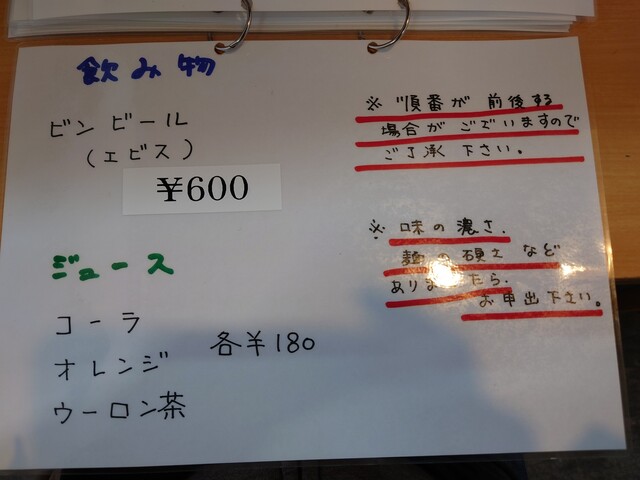 飲み物
ビン ビール
(エビス)
¥600
ジュース
コーラ
オレンジ
ウーロン茶
各¥180
※ 順番が 前後する
場合が ございますので
ご了承 下さい。
※ 味の 濃さ.
麺の 硬さ など
ありましたら.
お申出下さい。